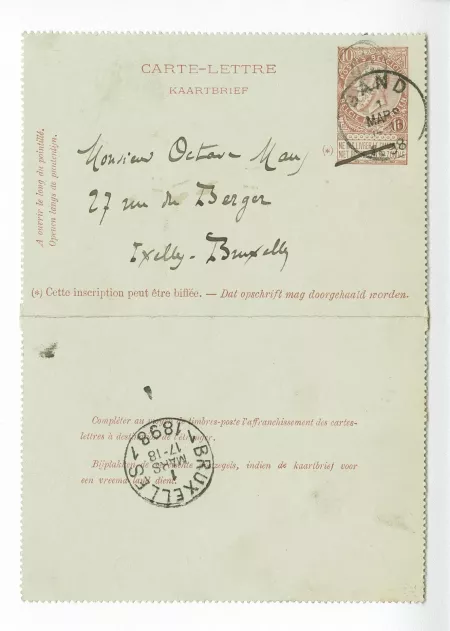 CARTE-LETTRE
KAARTBRIEF
10
GAND
1
MARS
98
(*)
A ouvrir le long du pointillé.
Openen langs de puntenlijn.
Monsieur Octave Maus
27 rue du Berger
Ixelles-Bruxelles
(*) Cette inscription peut être biffée. — Dat opschrift mag doorgehaald worden.
Compléter au timbres-poste l'affranchissement des cartes-
lettres à l'étranger.
Bijplakken de zegels, indien de kaartbrief voor
een vreemd land dient.
BRUXELLES
1
MARS
17-18
1898